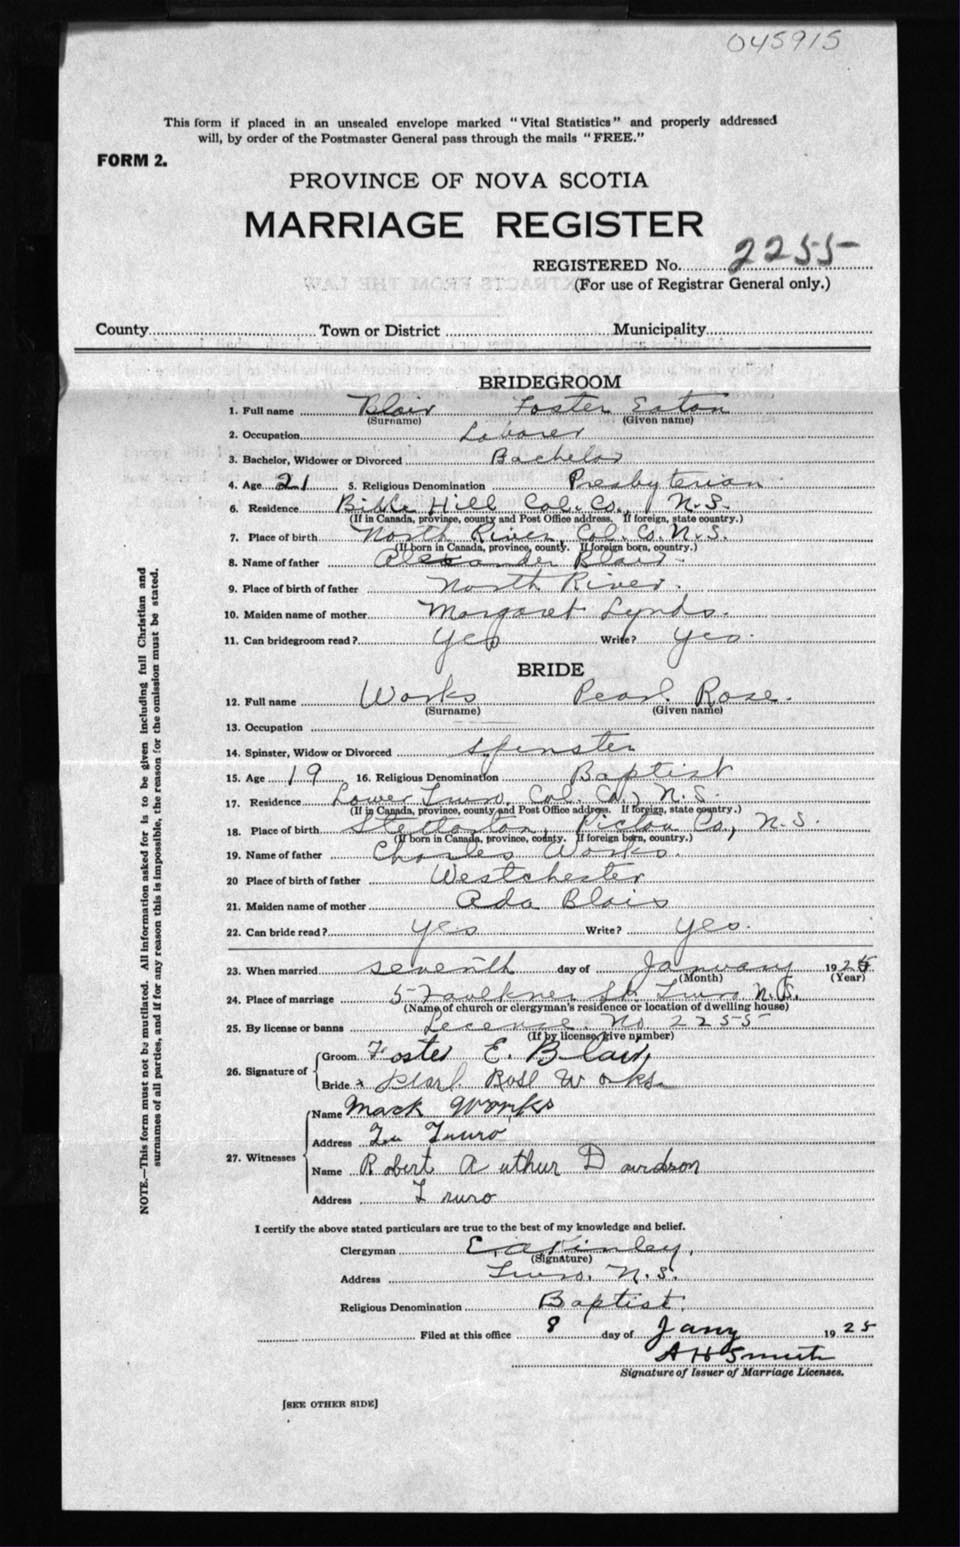 045915
This form if placed in an unsealed envelope marked "Vital Statistics" and properly addressed
will, by order of the Postmaster General pass through the mails "FREE."
FORM 2.
PROVINCE OF NOVA SCOTIA
MARRIAGE REGISTER
REGISTERED No. 2255
(For use of Registrar General only.)
County Town or District Municipality
BRIDEGROOM
1. Full name Blair Foster Eaton
(Surname) (Given name)
2. Occupation Laborer
3. Bachelor, Widower or Divorced Bachelor
4. Age 21 5. Religious Denomination Presbyterian
6. Residence Bible Hill Col. Co., N.S.
(If in Canada, province, county and Post Office address. If foreign, state country.)
7. Place of birth North River, Col. Co. N.S.
(If born in Canada, province, county. If foreign born, country.)
8. Name of father Alexander Blair.
9. Place of birth of father North River.
10. Maiden name of mother Margaret Lynds.
11. Can bridegroom read? yes Write? yes.
BRIDE
12. Full name Works Pearl Rose.
(Surname) (Given name)
13. Occupation
14. Spinster, Widow or Divorced Spinster
15. Age 19 16. Religious Denomination Baptist
17. Residence Lower Truro, Col. Co., N.S.
(If in Canada, province, county and Post Office address. If foreign, state country.)
18. Place of birth Stellarton, Pictou Co., N.S.
(If born in Canada, province, county. If foreign born, country.)
19. Name of father Charles Works.
20 Place of birth of father Westchester
21. Maiden name of mother Ada Blair
22. Can bride read? yes Write? yes.
23. When married seventh day of January 1925
(Month) (Year)
24. Place of marriage 5 Faulkner St. Truro N.S.
(Name of church or clergyman's residence or location of dwelling house)
25. By license or banns Lecense No 2255
(If by license, give number)
26. Signature of Groom Foster E. Blair,
Bride x Pearl Rose Works
27. Witnesses
Name Mack Works
Address Truro
Name Robert Authur Davidson
Address Truro
I certify the above stated particulars are true to the best of my knowledge and belief.
Clergyman E. A. Kinley,
(Signature)
Address Truro, N.S.
Religious Denomination Baptist.
Filed at this office 8 day of Jany 1925
A H Smith
Signature of Issuer of Marriage Licenses.
[SEE OTHER SIDE]
NOTE.—This form must not be mutilated. All information asked for is to be given including full Christian and
surnames of all parties, and if for any reason this is impossible, the reason for the omission must be stated.